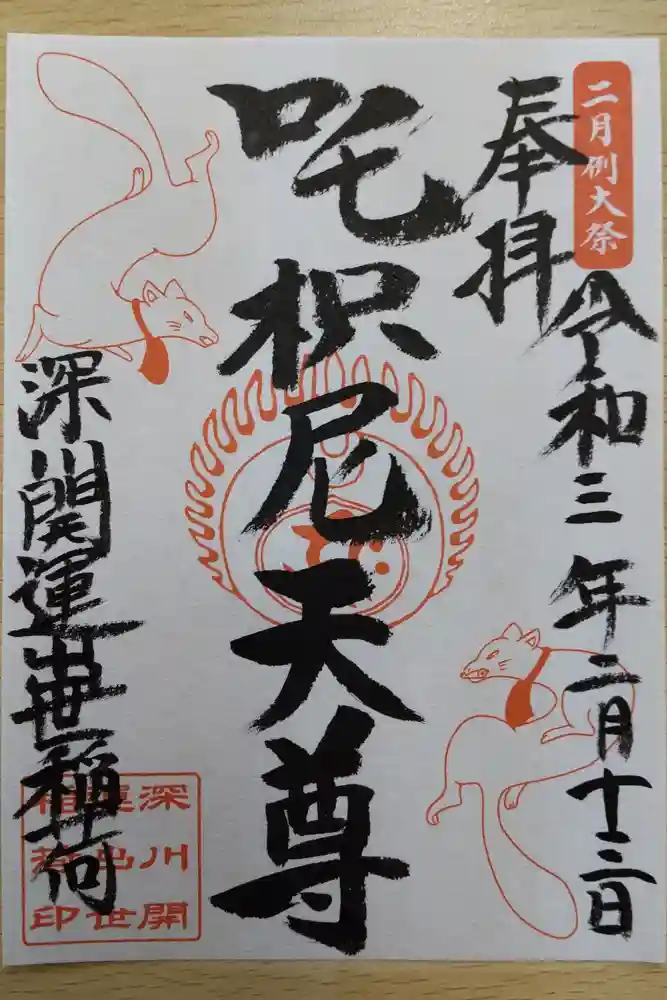 二月例大祭
奉拝
令和三年二月十二日
吒枳尼天尊
深川開運出世稲荷
深川開
運出世
稲荷印